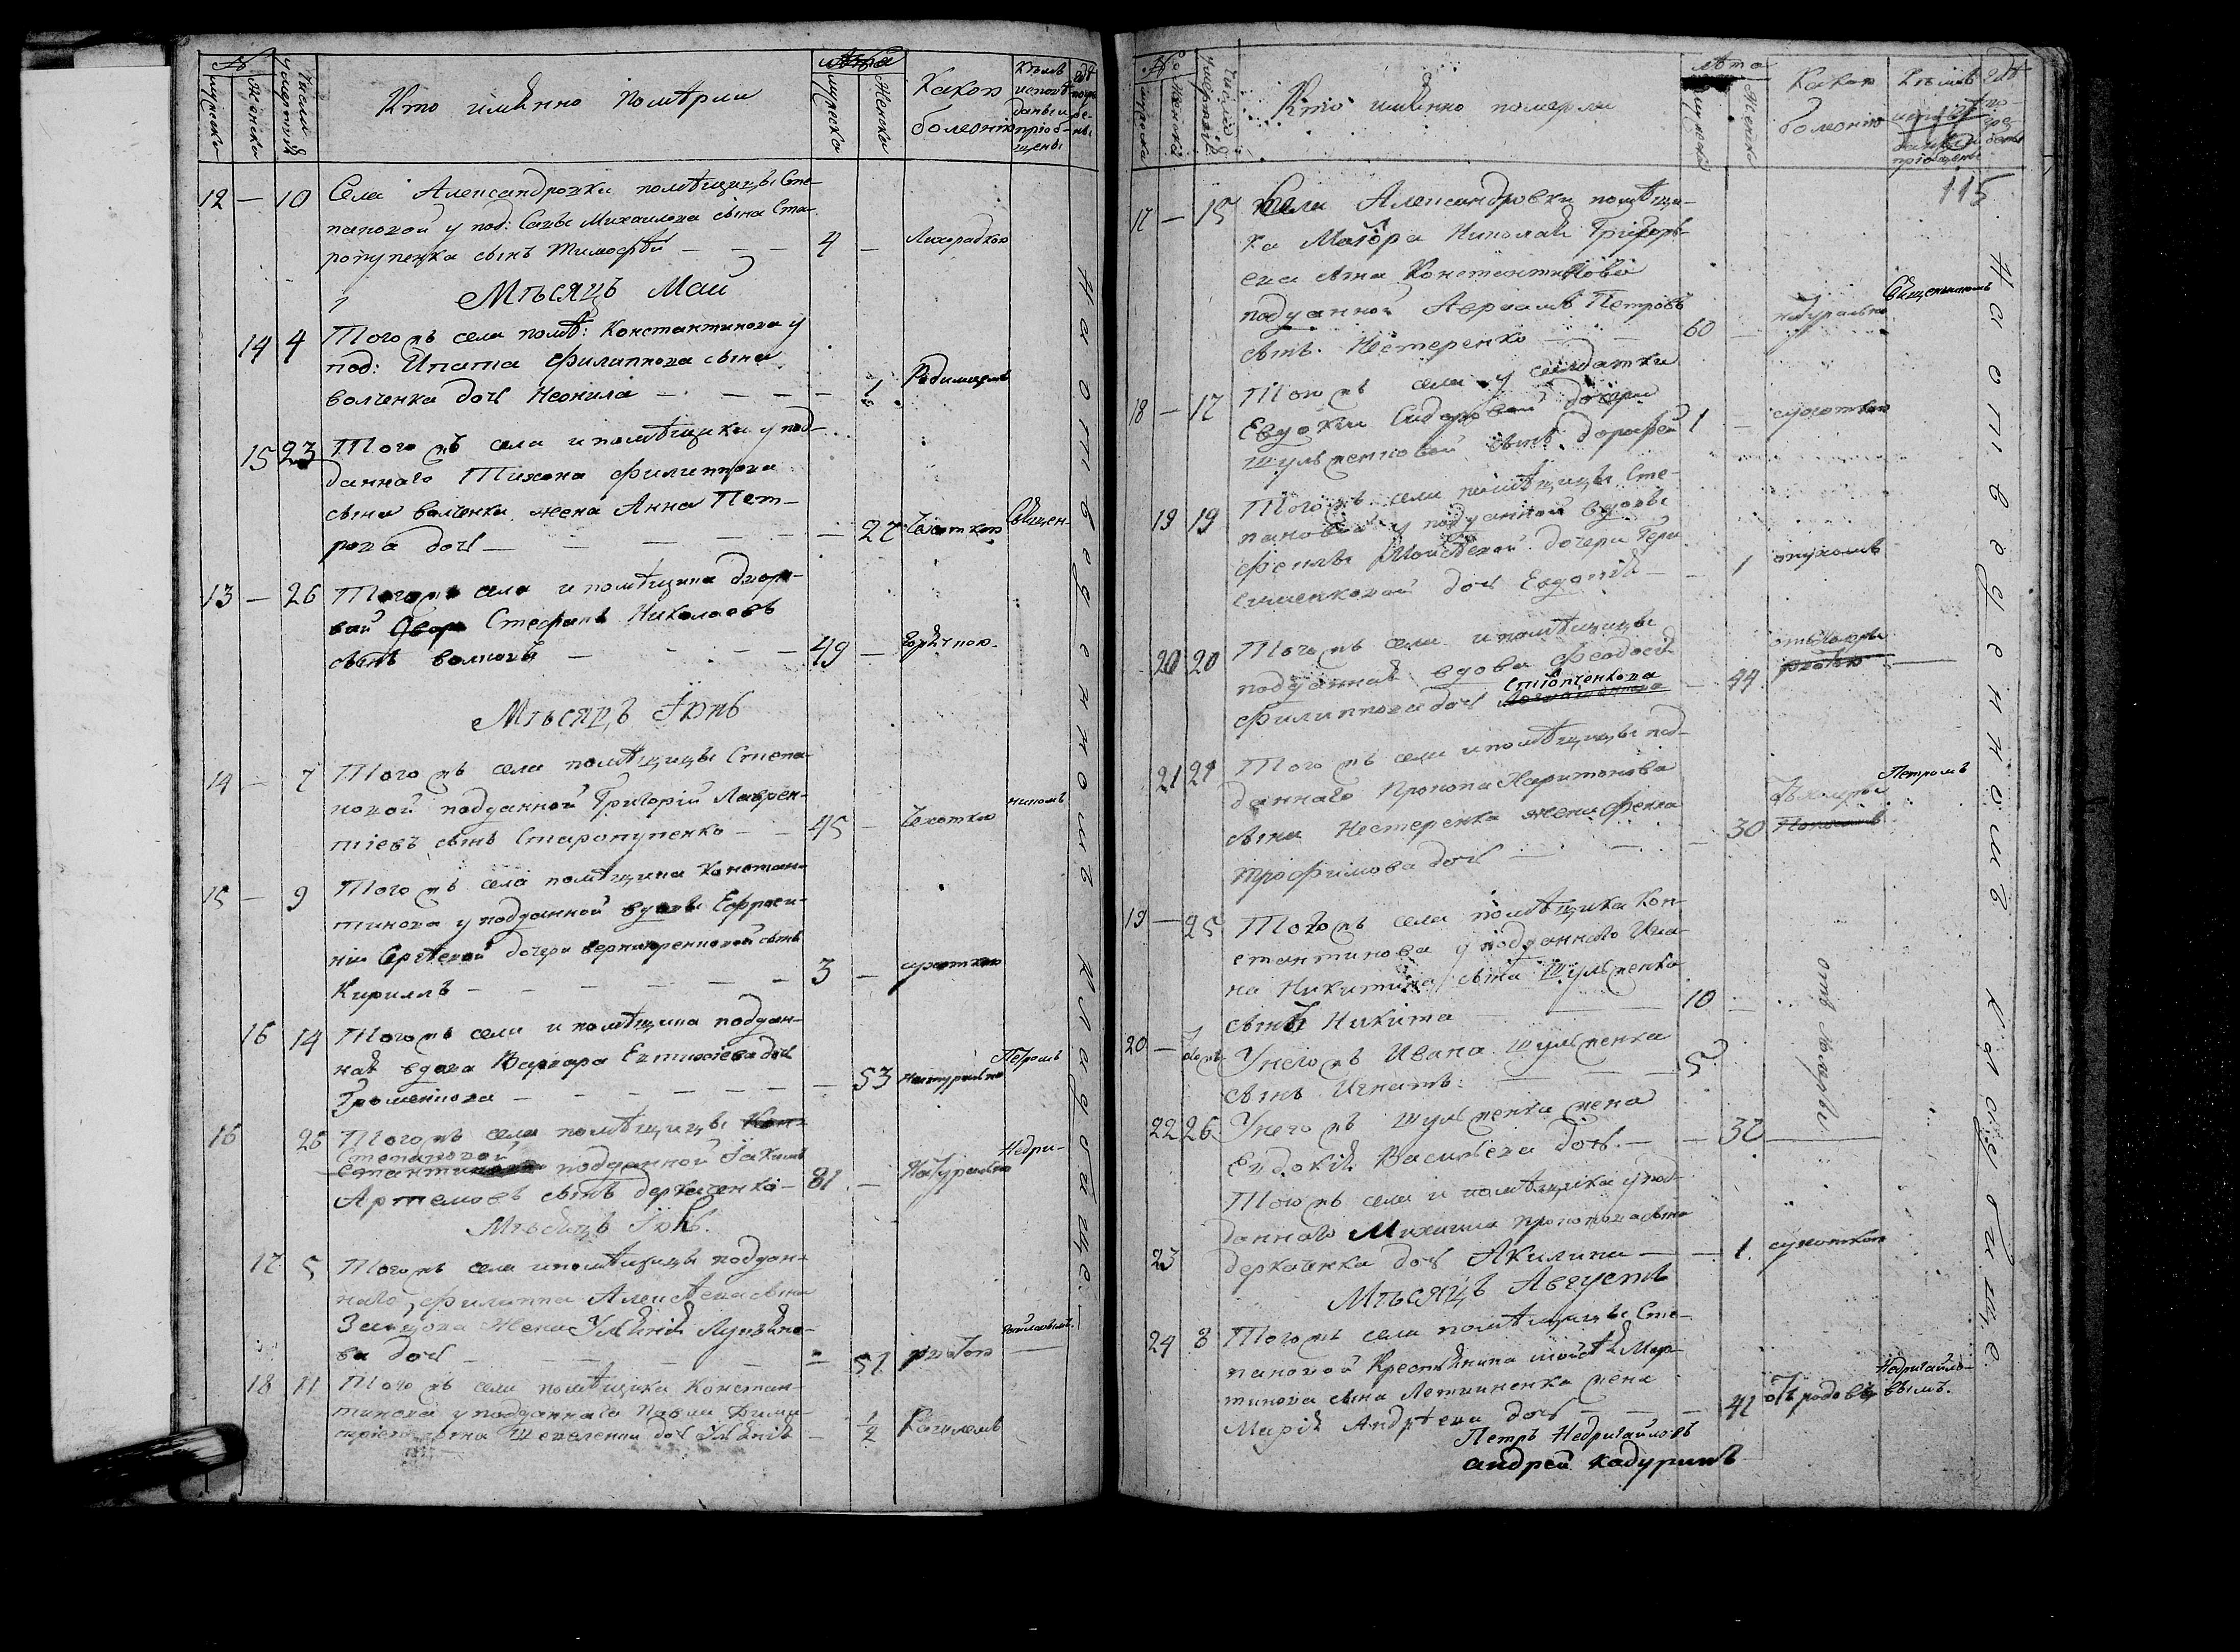 №
мужеска
Женска
Числа умертвія
Кто имянно померли
лѣта
мужеска
Женска
Какою болезнію
Кѣмъ исповѣданы и пріобщены
гдѣ погребены
12 — 10 Села Александровки помѣщицы Сте-
пановой у под: Савы Михаилова сына Ста-
ропупенка сынъ Тимофѣй — — — 4 — Лихорадкою
Мѣсяцъ Май
14 4 Того жъ села помѣ: Константинова у
под: Ипата Филиппова сына
волченка дочь Неонила — — — — 1 Родимцемъ
15 23 Того жъ села и помѣщика у под-
даннаго Тихона Филиппова
сына волченка жена Анна Пет-
рова дочь — — — — — 27 Чахоткою Священ-
13 — 26 Того жъ села и помѣщика дворо-
вой Стефанъ Николаевъ
сынъ волковъ — — — 49 — Горячкою
Мѣсяцъ Іюнь
14 — 7 Того жъ села помѣщицы Степа-
новой подданной Григорій Лаврен-
тіевъ сынъ Старопупенко — — 45 — Чахоткою
никомъ
15 — 9 Того жъ села помѣщика Констан-
тинова у подданной вдовы Ефроси-
ніи Сергѣевой дочери сынъ
Кириллъ — — — — — 3 — сухоткою
16 14 Того жъ села и помѣщика поддан-
ная вдова Варвара Евтихіева дочь
— — — — — 53 натурально Петромъ
16 26 Того жъ села помѣщицы
Степановой
подданной Іакимъ
Артемовъ сынъ деркаченко — 81 — Натурально Недри-
Мѣсяцъ Іюль.
17 5 Того жъ села и помѣщицы поддан-
наго Филиппа Алексѣева сына
Зайцова жена Ульянія Лукьяно-
ва дочь — — — — 51 рвотою гайловымъ.
18 11 Того жъ села помѣщика Констан-
тинова у подданнаго Павла Дими-
тріева сына Шевеленка дочь Ульянія — ½ Кашлемъ
На отведенномъ кладбищѣ.
№
мужеска
Женска
Числа умертвія
Кто имянно померли
лѣта
мужеска
Женска
Какою болезнію
Кѣмъ исповѣданы и пріобщены
гдѣ погребены
115
17 — 15 Села Александровки помѣщи-
ка Маіора Николая Григорь-
ева сына Константинова
подданной Авраамъ Петровъ
сынъ Нестеренко 60 — натурально Священникомъ
18 — 17 Того жъ села у солдатки
Евдокіи Сидоровой дочери
Шульженковой сынъ дорофей 1 — сухоткою
19 19 Того жъ села помѣщицы Сте-
пановой у подданной вдовы
Феклы Моисѣевой дочери Гера-
сименковой дочь Евдокія — — 1 опухолью
20 20 Того жъ села и помѣщицы
подданная вдова Феодосія
Филиппова дочь — 44 отъ холеры
21 21 Того жъ села и помѣщицы под-
даннаго Прокопа Харитонова
сына Нестеренка жена Фекла
Трофимова дочь — — — 30 отъ холеры Петромъ
19 — 25 Того жъ села помѣщика Кон-
стантинова у подданнаго Ива-
на Никитина сына Шульженка
сынъ Никита — — 10 —
20 — У него жъ Ивана шульженка
сынъ Игнатъ — — 5
22 26 У него жъ шульженка жена
Евдокія Васильева дочь — — 37
отъ холеры
Того жъ села и помѣщика у под-
даннаго Михаила Прокопова сына
23 деркаченка дочь Акилина — — 1. сухоткою
Мѣсяцъ Августъ
24 3 Того жъ села помѣщицы Сте-
пановой Крестьянина Моисѣя Мар-
тинова сына жена
Марія Андрѣева дочь — — — 41 отъ родовъ Недригайло-
вымъ.
На отведенномъ кладбищѣ.
Петръ Недригайловъ
андрей кадуринъ